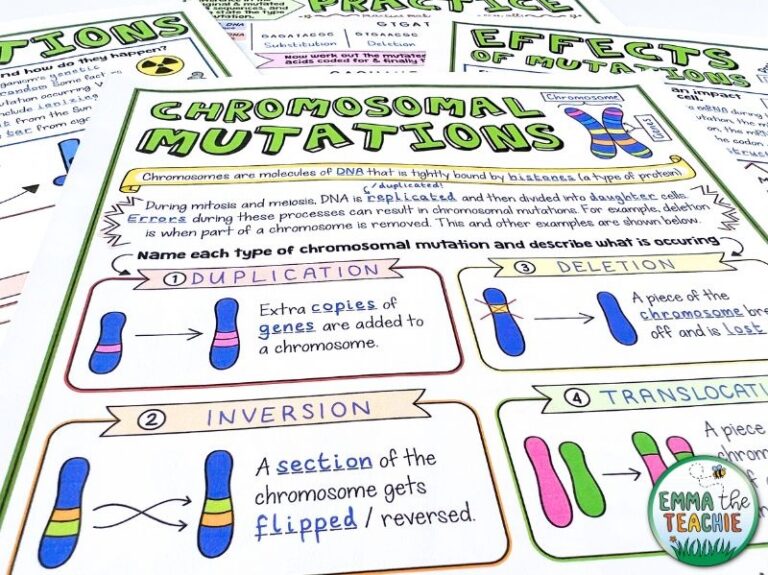 TIONS
and how do they happen?
genetic
random Some
mutation occurring
include ionizing
from the Sun
PRACTICE
sequences, and
mutation.
DNA
GTGAT
Substitution Deletion
Now work out the
acids coded for & finally
EFFECTS
OF MUTATIONS
an impact
cell.
mRNA during
the codon
CHROMOSOMAL
MUTATIONS
Chromosome
Genes
Chromosomes are molecules of DNA that is tightly bound by histones (a type of protein)
/duplicated!
During mitosis and meiosis, DNA is replicated and then divided into daughter cells.
Errors during these processes can result in chromosomal mutations. For example, deletion
is when part of a chromosome is removed. This and other examples are shown below.
Name each type of chromosomal mutation and describe what is occuring
1 DUPLICATION
Extra copies of
genes are added to
a chromosome.
3 DELETION
A piece of the
chromosome bre
off and is lost
2 INVERSION
A section of the
chromosome gets
flipped / reversed.
4 TRANSLOCATI
A piece
chrom
EMMA the
TEACHIE